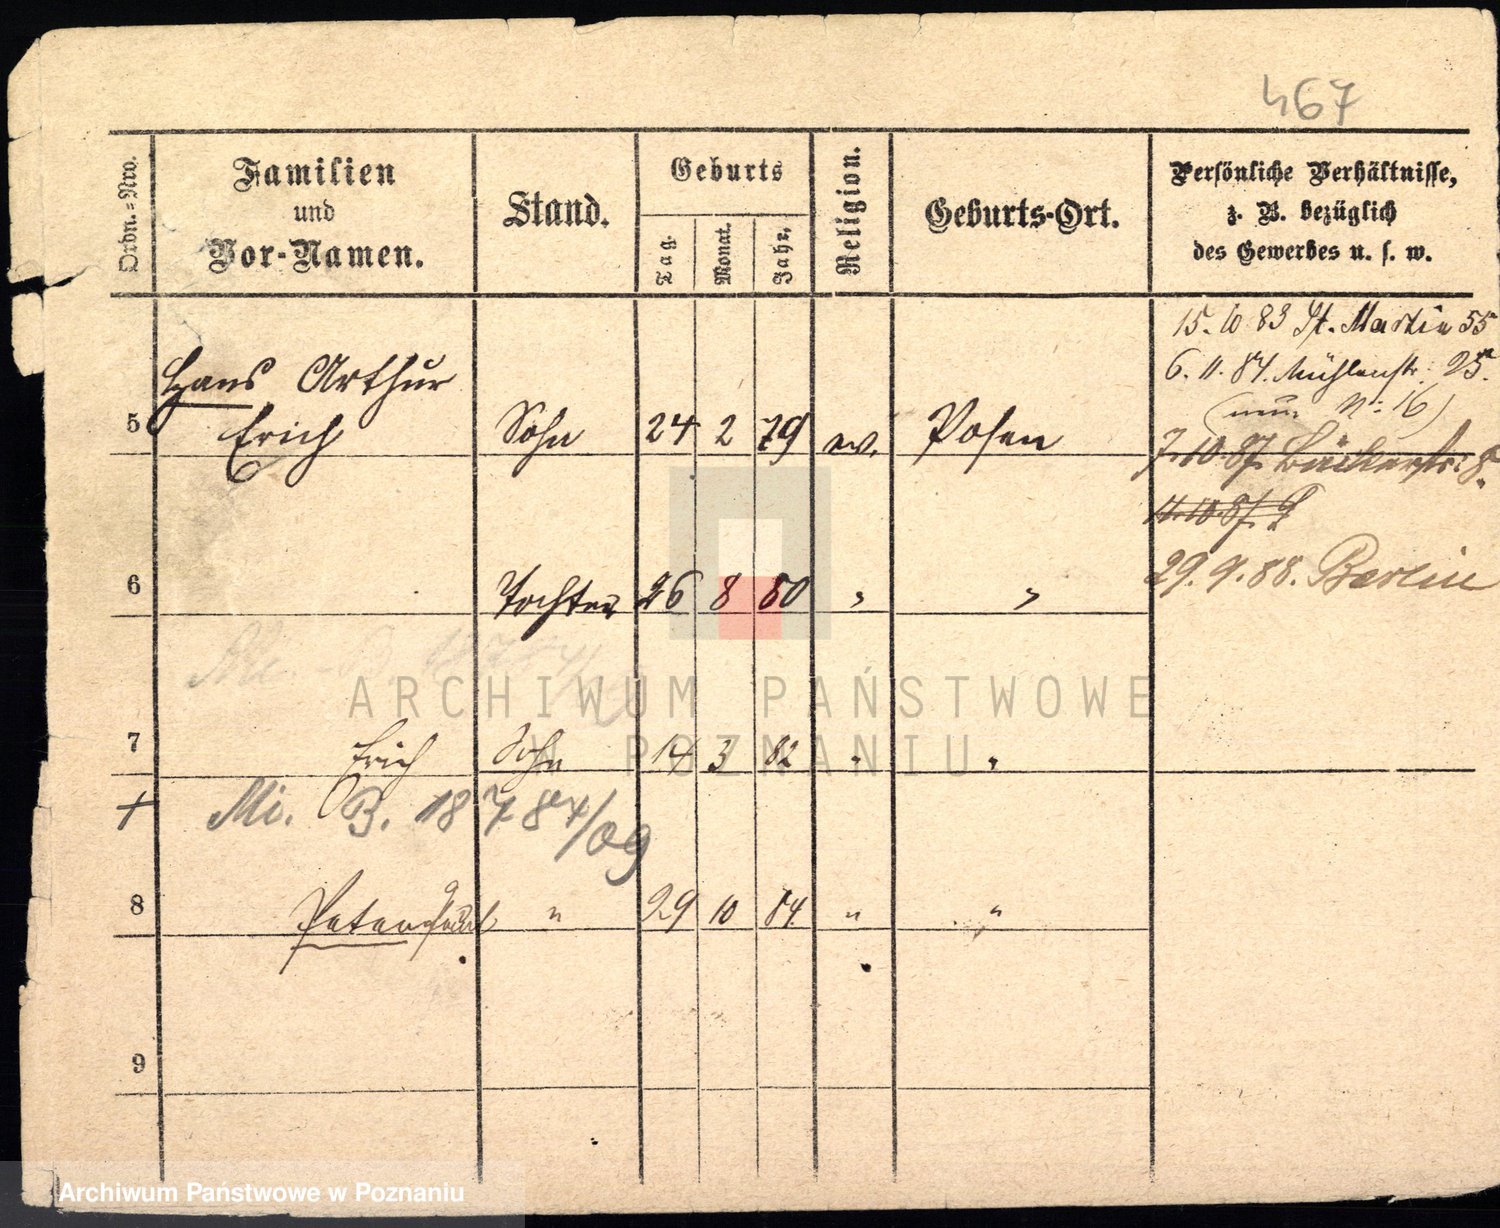 467
Ordn.-Nro.
Familien
und
Vor-Namen.
Stand.
Geburts
Tag.
Monat.
Jahr.
Religion.
Geburts-Ort.
Persönliche Verhältnisse,
z. B. bezüglich
des Gewerbes u. s. w.
15. 10 83 St. Martin 55
6. 11. 84. Mühlenstr: 25.
(neue N: 16)
Hans Arthur
5 Erich Sohn 24 2 79 ev. Posen
7. 10. 87. Bäckerstr: 8.
14. 10. 87.
29. 9. 88. Berlin
6 Tochter 26 8 80 " "
ARCHIWUM PAŃSTWOWE
W POZNANIU
7 Erich Sohn 14 3 82 " "
+ Mi. B. 18784/09
8 Peter Paul " 29 10 84 " "
9
Archiwum Państwowe w Poznaniu